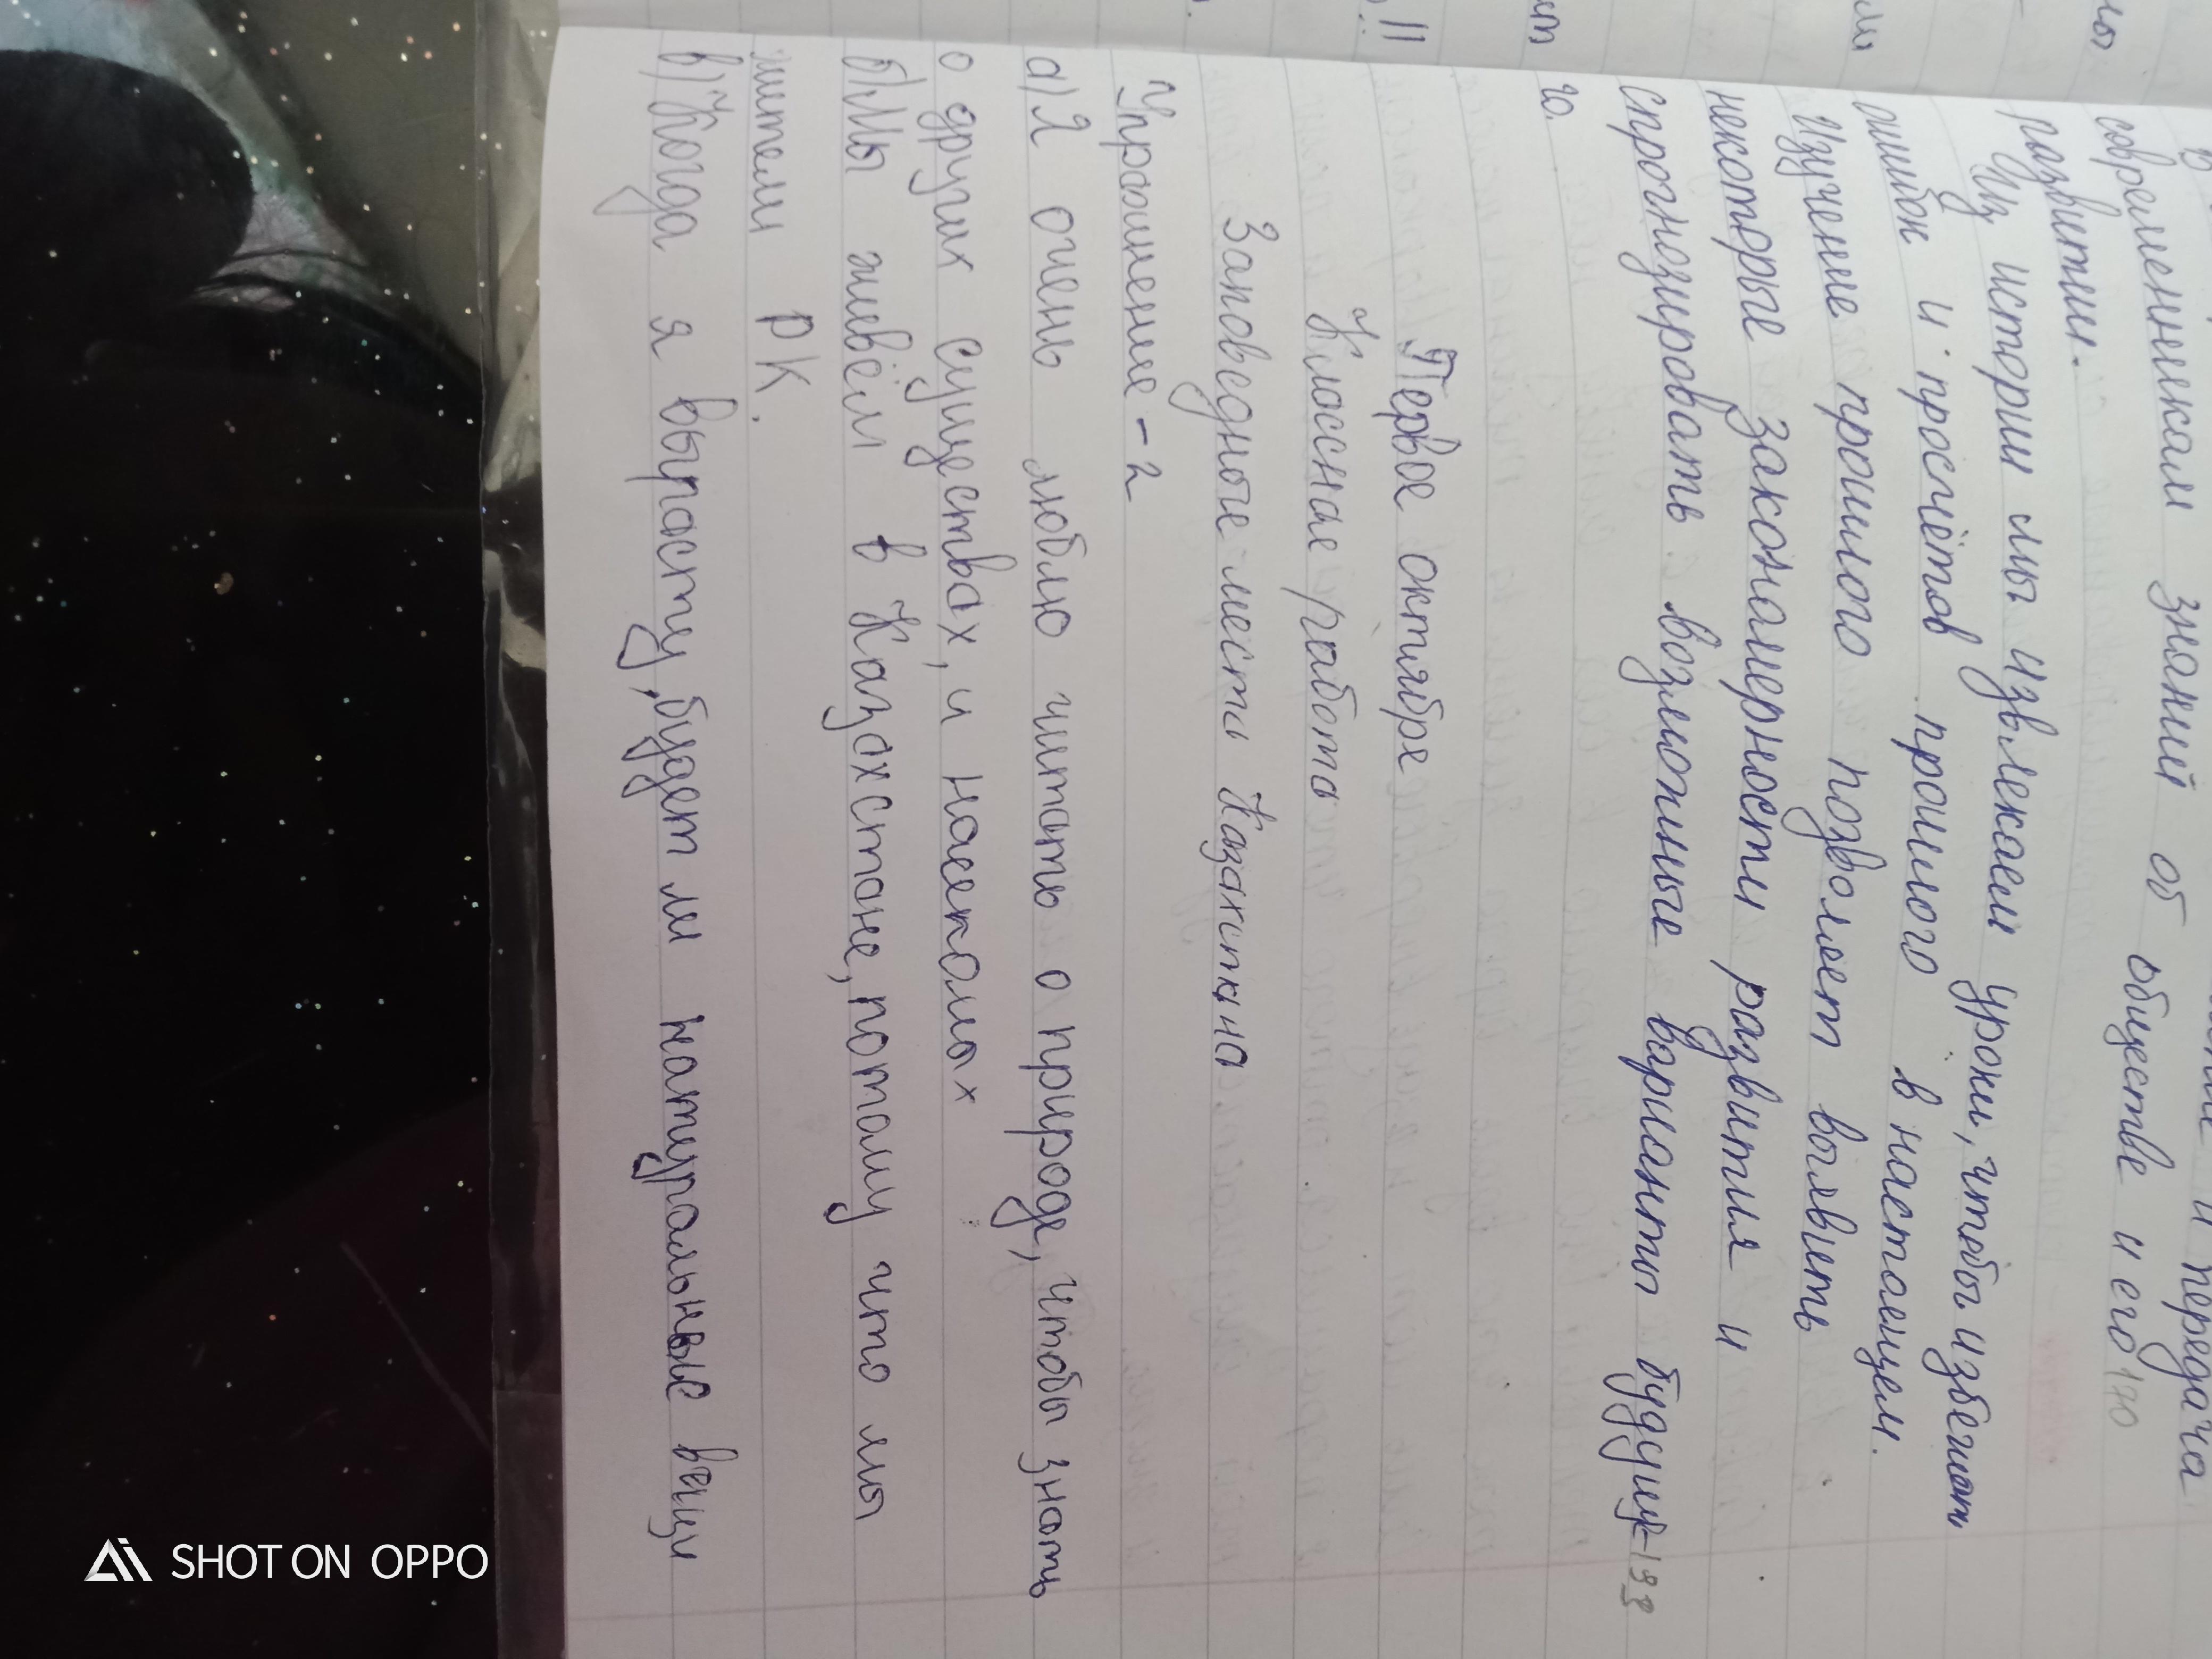 и передача
современникам знаний об обществе и его 170
развитии.
Из истории мы извлекаем уроки, чтобы избежать
ошибок и просчётов прошлого в настоящем.
Изучение прошлого позволяет выявить
некоторые закономерности развития и
спрогнозировать возможные варианты будуще-193
го.
Первое октября
Классная работа
Заповедные места Казахстана
Упражнение-2
а) Я очень люблю читать о природе, чтобы знать
о других существах, и насекомых
б) Мы живём в Казахстане, потому что мы
жители РК.
в) Когда я вырасту, будет ли натуральные вещи
SHOT ON OPPO